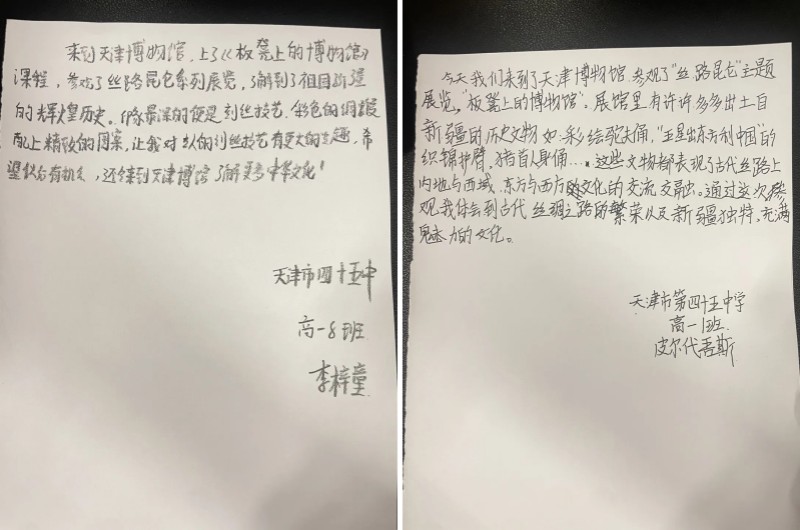 来到天津博物馆，上了《板凳上的博物馆》
课程，参观了丝路昆仑系列展览，了解到了祖国新疆
的辉煌历史。印象最深的便是刻丝技艺，彩色的绸缎
配上精致的图案，让我对 的刻丝技艺有更大的 趣，希
望以后有机会，还会来到天津博馆了解更多中华文化！
天津市四十五中
高一8班
李梓童
今天我们来到了天津博物馆 参观了“丝路昆仑”主题
展览，“板凳上的博物馆”。展馆里有许许多多出土自
新疆的历史文物 如：彩绘驼夫俑，“五星出东方利中国”的
织锦护臂，猪首人身俑…. 这些文物都表现了古代丝路上
内地与西域、东方与西方 文化的交流交融。通过这次参
观我体会到古代丝绸之路的繁荣以及新疆独特，充满
魅力的文化。
天津市第四十五中学
高一1班
皮尔代吾斯